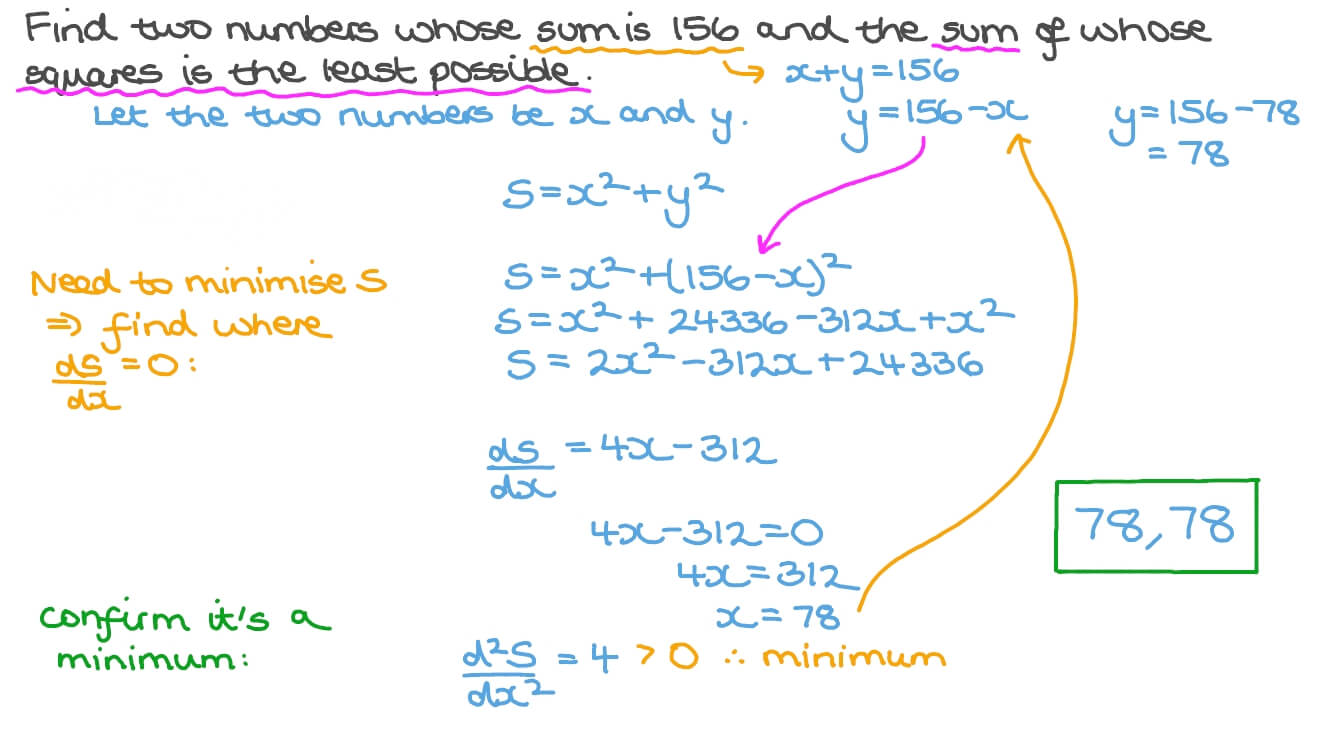 Find two numbers whose sum is 156 and the sum of whose
squares is the least possible.
x+y=156
Let the two numbers be x and y.
y=156-x
y=156-78
=78
S=x²+y²
Need to minimise S
⇒ find where
dS/dx=0:
S=x²+(156-x)²
S=x²+24336-312x+x²
S=2x²-312x+24336
dS/dx=4x-312
4x-312=0
4x=312
x=78
78,78
confirm it's a
minimum:
d²S/dx²=4>0 ∴ minimum